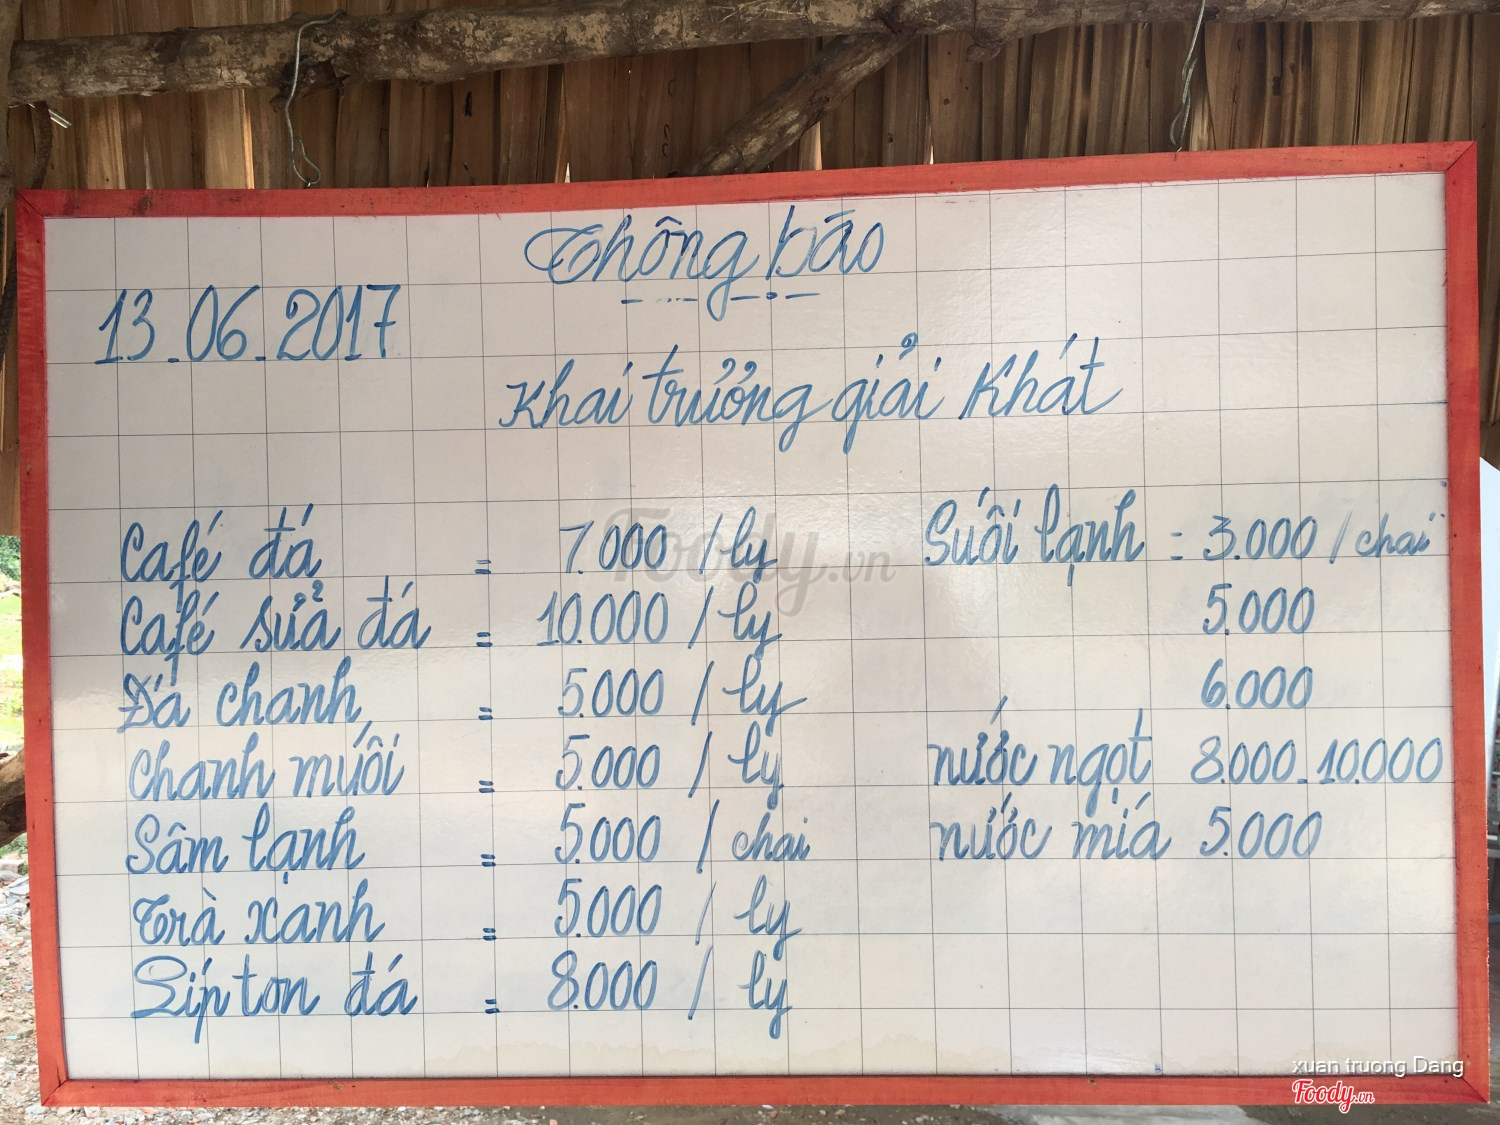 Thông báo
13.06.2017
Khai trưởng giải Khát
Café đá = 7.000 / ly
Café sửa đá = 10.000 / ly
Đá chanh = 5.000 / ly
Chanh muối = 5.000 / ly
Sâm lạnh = 5.000 / chai
Trà xanh = 5.000 / ly
Lípton đá = 8.000 / ly
Suối lạnh = 3.000 / chai
5.000
6.000
nước ngọt 8.000 - 10.000
nước mía 5.000
Foody.vn
xuan truong Dang
Foody.vn